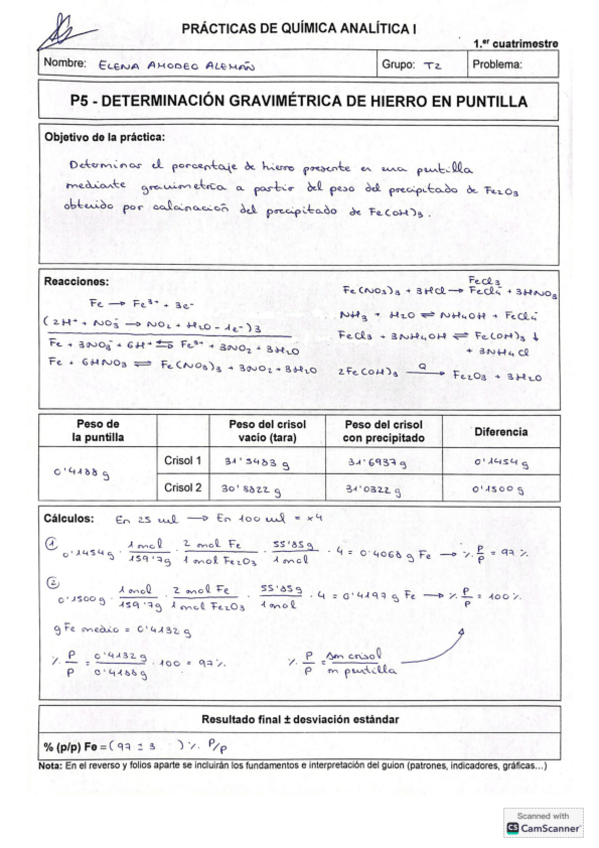 PRÁCTICAS DE QUÍMICA ANALÍTICA I
1.er cuatrimestre
Nombre: ELENA AMODEO ALEMAÑ Grupo: T2 Problema:
P5 - DETERMINACIÓN GRAVIMÉTRICA DE HIERRO EN PUNTILLA
Objetivo de la práctica:
Determinar el porcentaje de hierro presente en una puntilla
mediante gravimetrica a partir del peso del precipitado de Fe2O3
obtenido por calcinación del precipitado de Fe(OH)3.
Reacciones:
Fe → Fe3+ + 3e-
(2H+ + NO3- → NO2 + H2O - 1e-)3
Fe + 3NO3- + 6H+ ⇌ Fe3+ + 3NO2 + 3H2O
Fe + 6HNO3 ⇌ Fe(NO3)3 + 3NO2 + 3H2O
FeCl3
Fe(NO3)3 + 3HCl → FeCl4- + 3HNO3
NH3 + H2O ⇌ NH4OH + FeCl4-
FeCl3 + 3NH4OH ⇌ Fe(OH)3 ↓
+ 3NH4Cl
2Fe(OH)3 → Q Fe2O3 + 3H2O
Peso de la puntilla Peso del crisol vacío (tara) Peso del crisol con precipitado Diferencia
0'4188 g
Crisol 1 31'5483 g 31'6937 g 0'1454 g
Crisol 2 30'8822 g 31'0322 g 0'1500 g
Cálculos: En 25 ml → En 100 ml = x4
① 0'1454 g · 1 mol / 159'7g · 2 mol Fe / 1 mol Fe2O3 · 55'85g / 1 mol · 4 = 0'4068 g Fe → % P/P = 97 %
② 0'1500 g · 1 mol / 159'7g · 2 mol Fe / 1 mol Fe2O3 · 55'85g / 1 mol · 4 = 0'4197 g Fe → % P/P = 100 %
g Fe medio = 0'4132 g
% P/P = 0'4132 g / 0'4188 g · 100 = 97 % % P/P = sm crisol / m puntilla
Resultado final ± desviación estándar
% (p/p) Fe = (97 ± 3 ) % P/P
Nota: En el reverso y folios aparte se incluirán los fundamentos e interpretación del guion (patrones, indicadores, gráficas…)
Scanned with
CS CamScanner